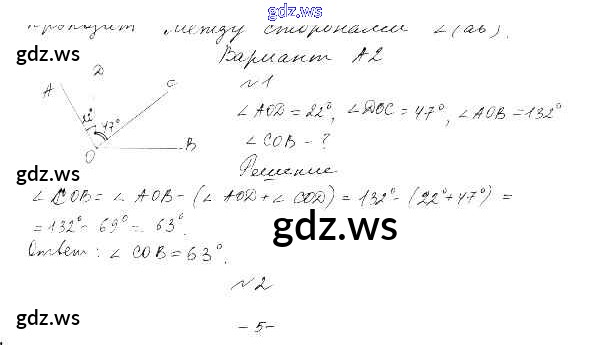 gdz.ws
проходит между сторонами ∠(ab).
gdz.ws
Вариант А2
D
A
C
22°
47°
O
B
№1
∠AOD = 22°, ∠DOC = 47°, ∠AOB = 132°
∠COB - ?
gdz.ws
Решение
∠COB = ∠AOB - (∠AOD + ∠COD) = 132° - (22° + 47°) =
= 132° - 69° = 63°.
gdz.ws
Ответ: ∠COB = 63°.
gdz.ws
№2
gdz.ws
- 5 -